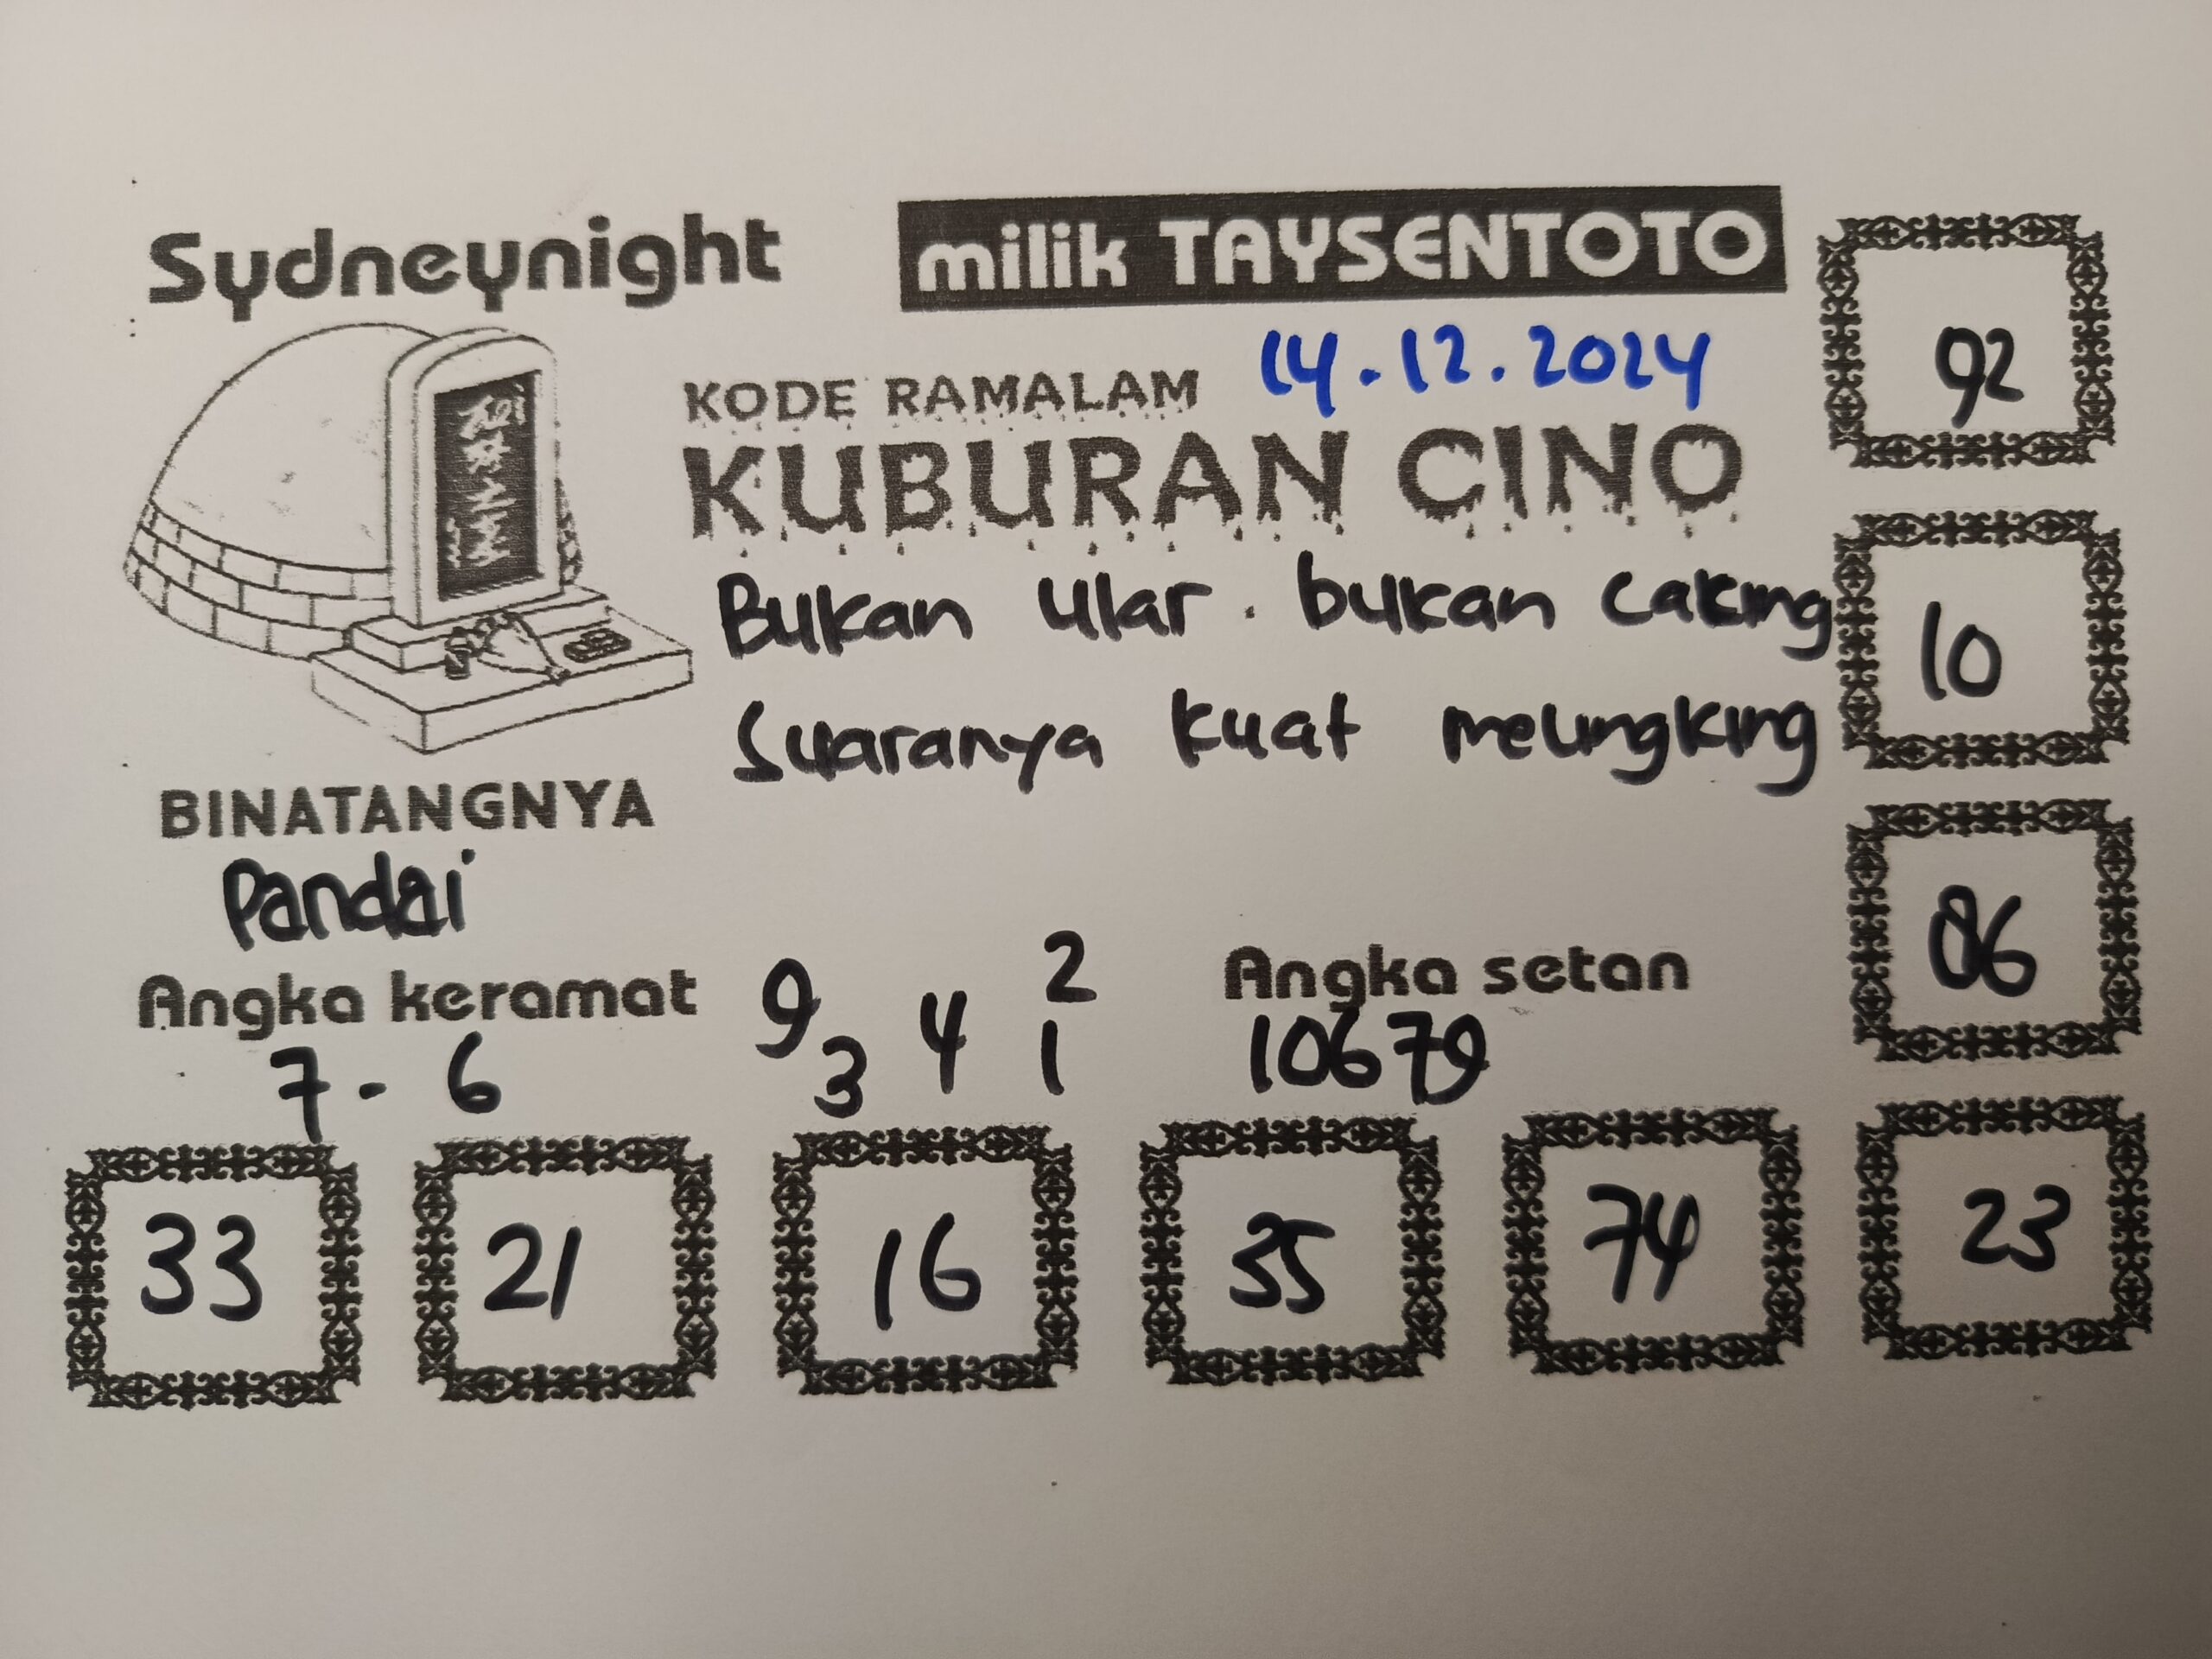 Sydneynight
milik TAYSENTOTO
KODE RAMALAM 14.12.2024
KUBURAN CINO
Bukan ular. bukan cacing
Suaranya kuat melingking
BINATANGNYA
Pandai
Angka keramat
7 - 6
9 3 4 2 1
Angka setan
10679
92
10
86
33 21 16 35 74 23